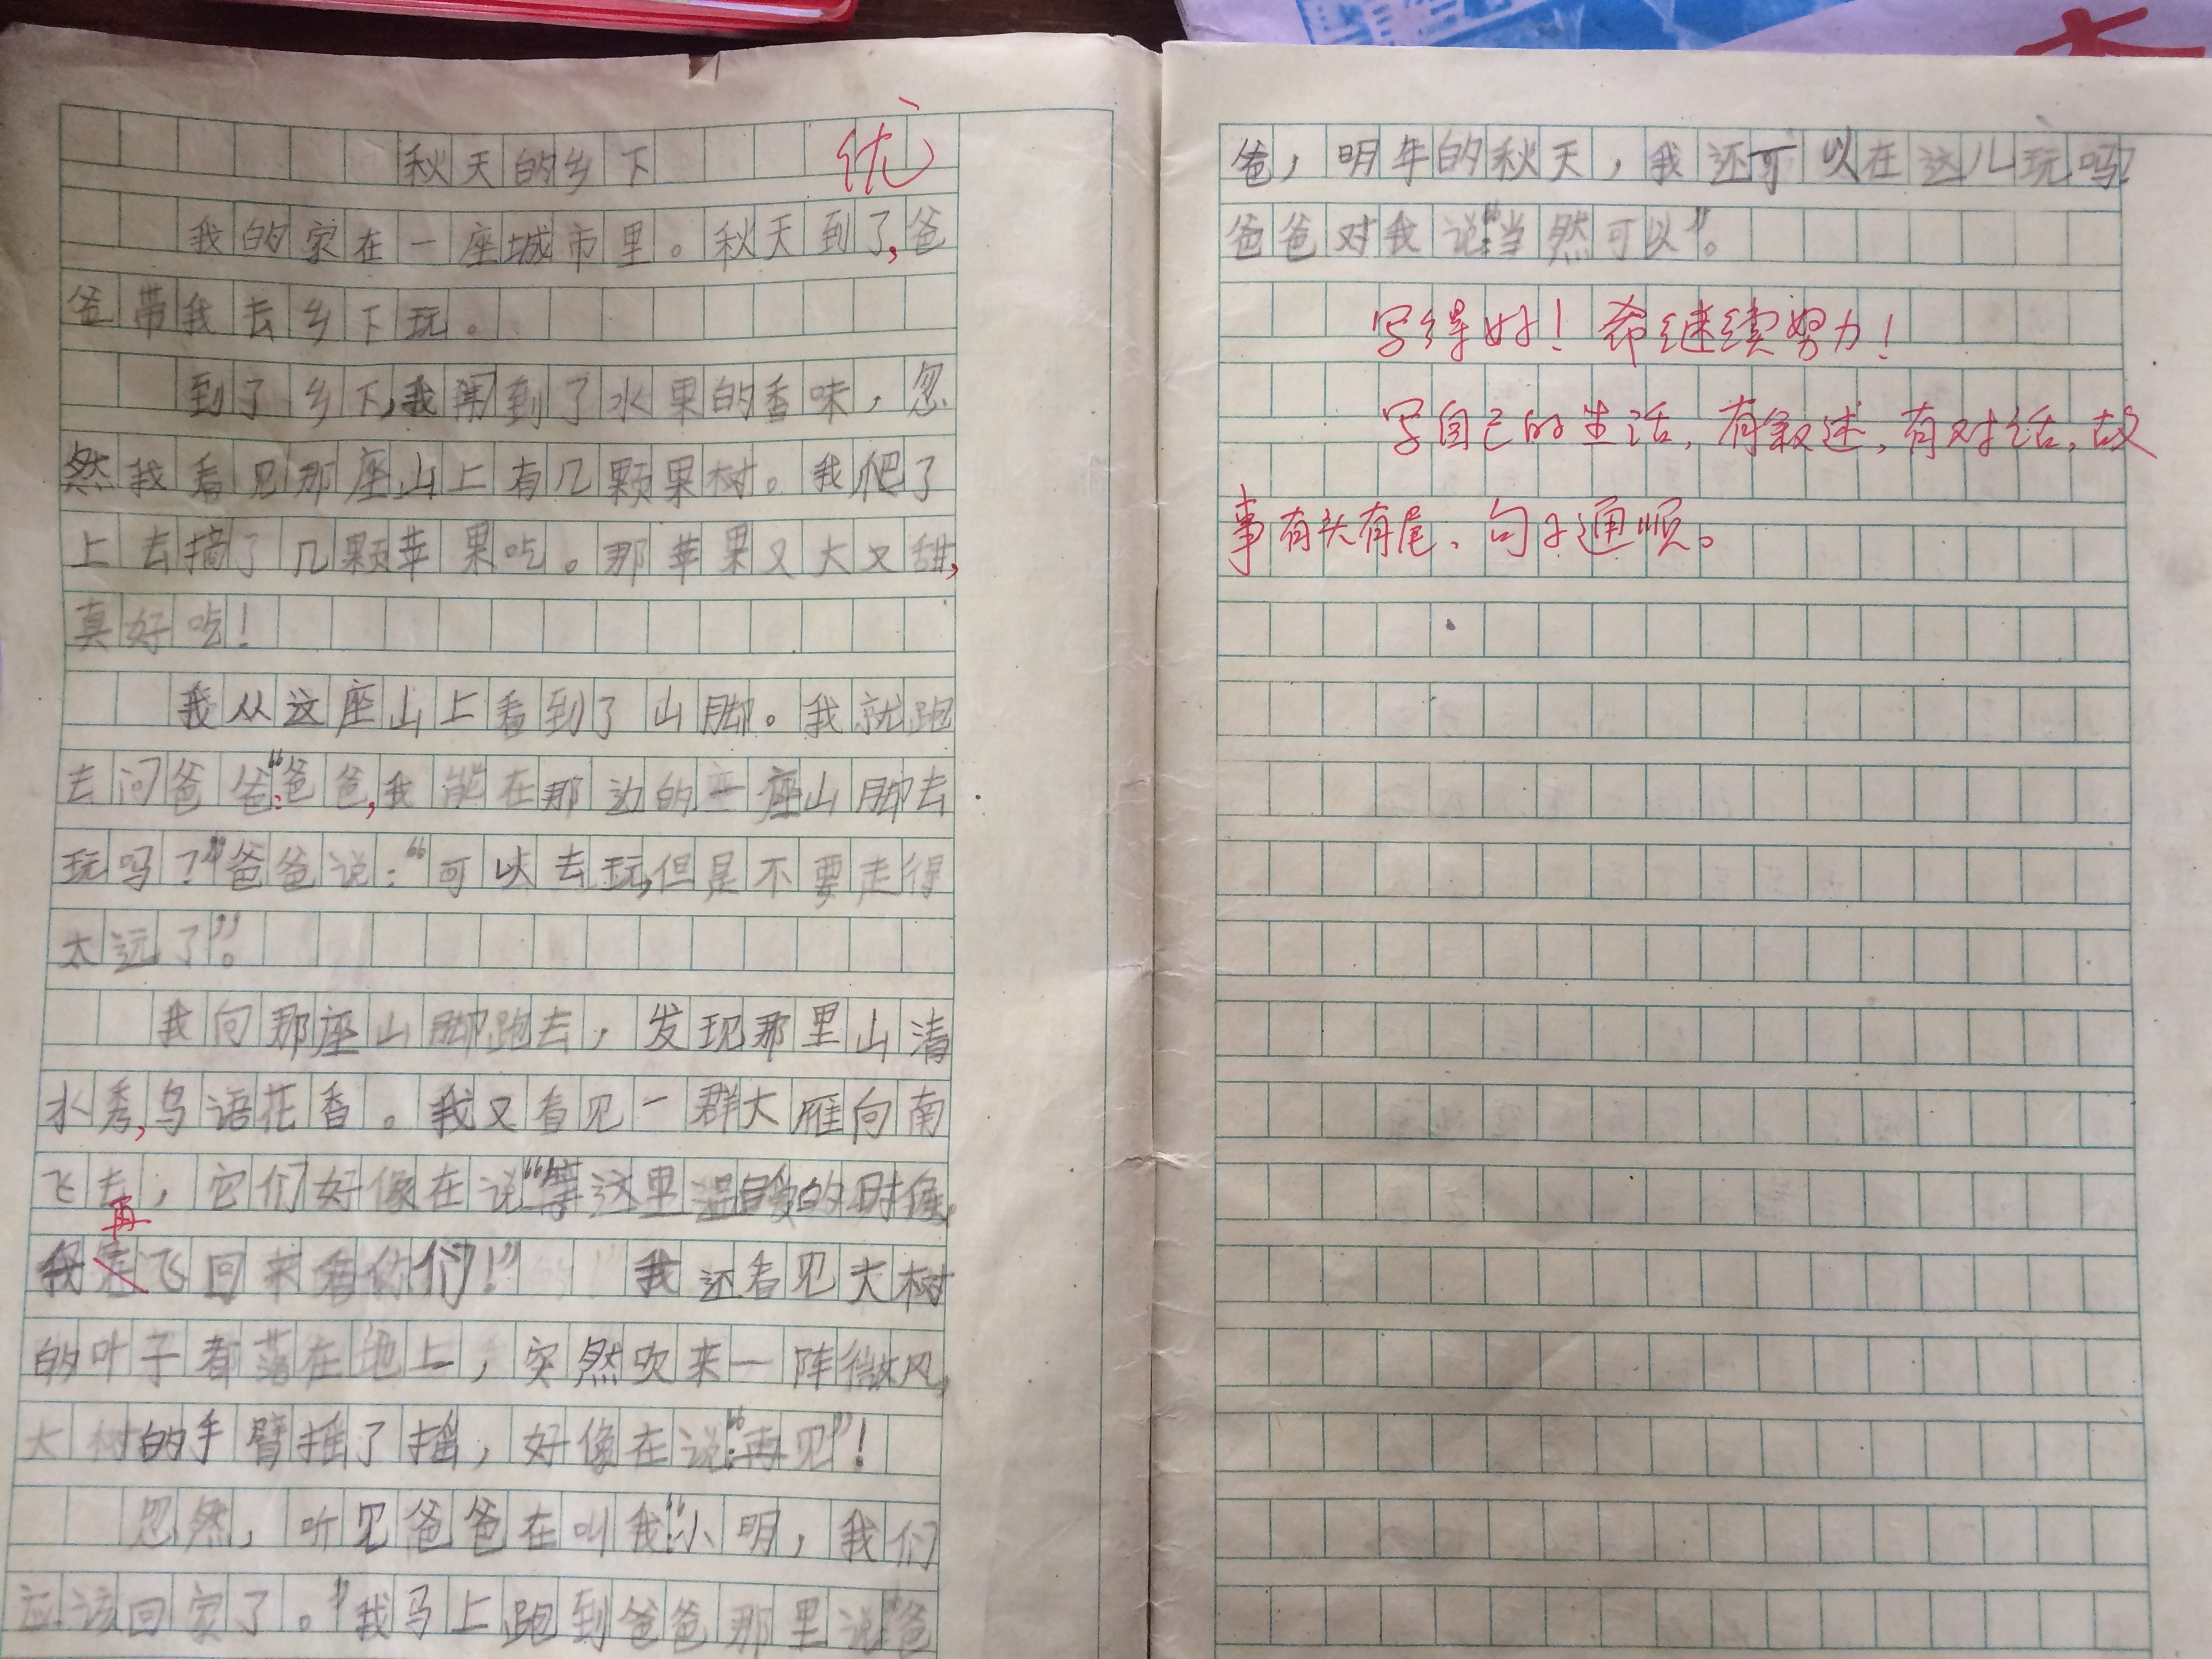 秋天的乡下
优
我的家在一座城市里。秋天到了,爸
爸带我去乡下玩。
到了乡下,我闻到了水果的香味，忽
然我看见那座山上有几颗果树。我爬了
上去摘了几颗苹果吃。那苹果又大又甜,
真好吃!
我从这座山上看到了山脚。我就跑
去问爸爸:“爸爸,我能在那边的一座山脚去
玩吗?”爸爸说:“可以去玩,但是不要走得
太远了”。
我向那座山脚跑去，发现那里山清
水秀,鸟语花香。我又看见一群大雁向南
飞去，它们好像在说“等这里温暖的时候,
再
我飞回来看你们!”我还看见大树
的叶子都落在地上，突然吹来一阵微风,
大树的手臂摇了摇，好像在说:“再见”!
忽然，听见爸爸在叫我:“小明，我们
应该回家了。”我马上跑到爸爸那里说“爸
爸，明年的秋天，我还可以在这儿玩吗?
爸爸对我说:“当然可以”。
写得好!希继续努力!
写自己的生活,有叙述,有对话,故
事有头有尾、句子通顺。